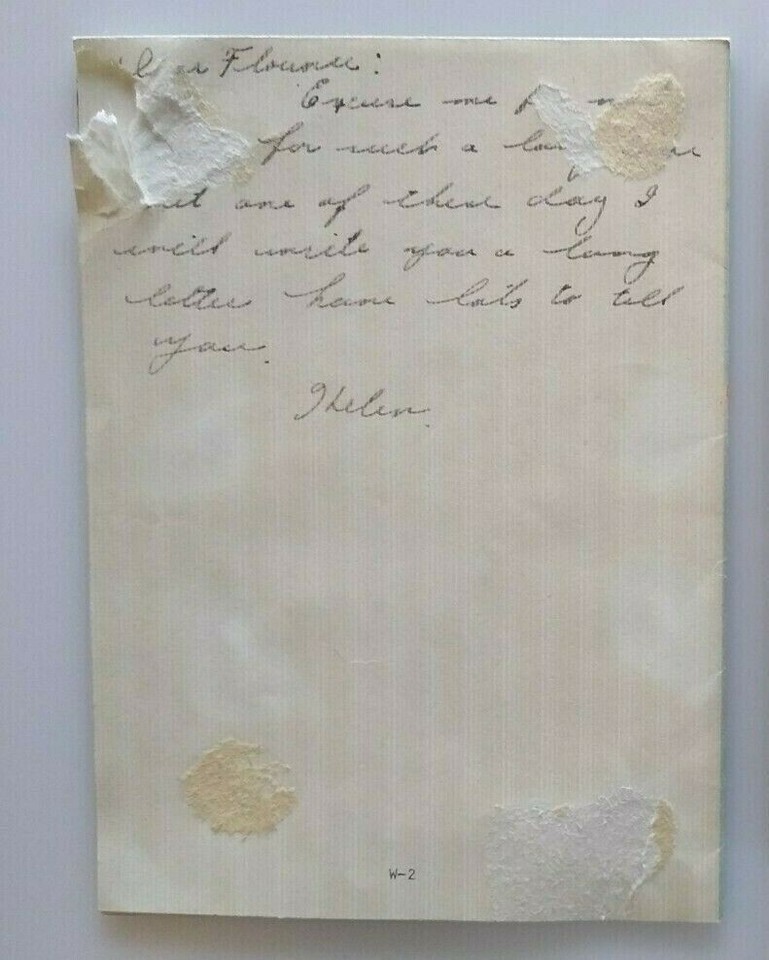 Dear Florence:
Excuse me
for such a
but one of these day I
will write you a long
letter have lots to tell
you.
Helen.
W-2